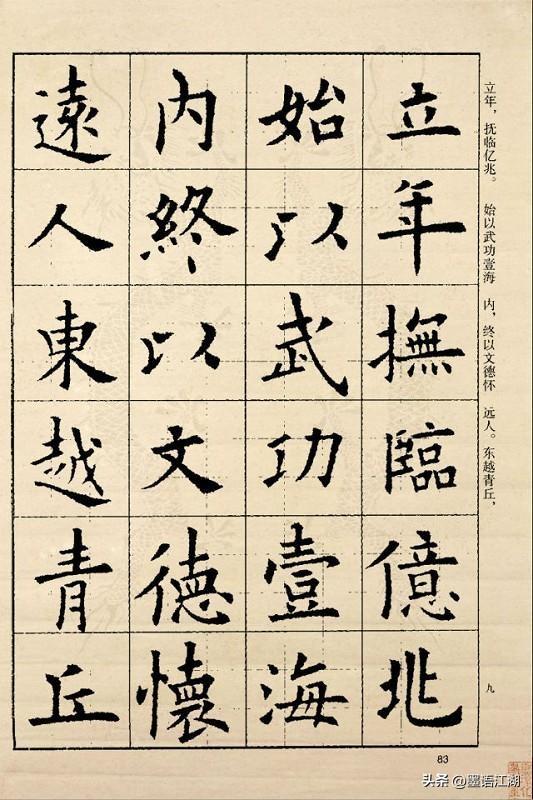 立年撫臨億兆
始以武功壹海
内終以文德懷
遠人東越青丘
立年，抚临亿兆。 始以武功壹海 内，终以文德怀 远人。东越青丘，
九
83
头条 @墨语江湖